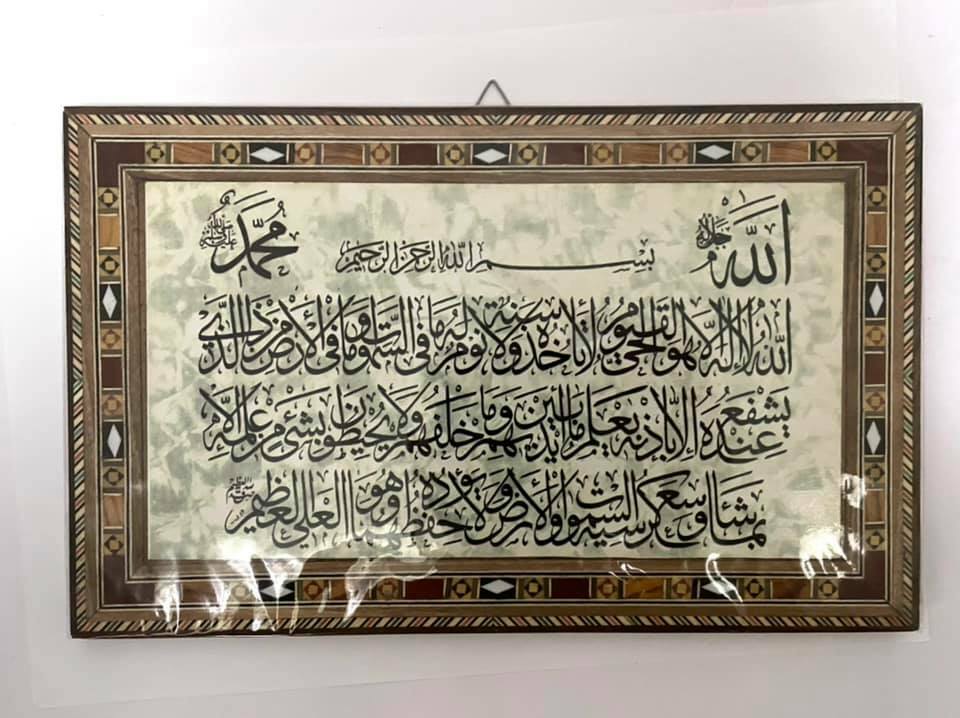 الله جل جلاله
بسم الله الرحمن الرحيم
محمد صلى الله عليه وسلم
اللهُ لا إله إلا هو الحي القيوم لا تأخذه سنة ولا نوم له ما في السموات وما في الأرض من ذا الذي
يشفع عنده إلا بإذنه يعلم ما بين أيديهم وما خلفهم ولا يحيطون بشئ من علمه إلا
بما شاء وسع كرسيه السموات والأرض ولا يؤده حفظهما وهو العلي العظيم